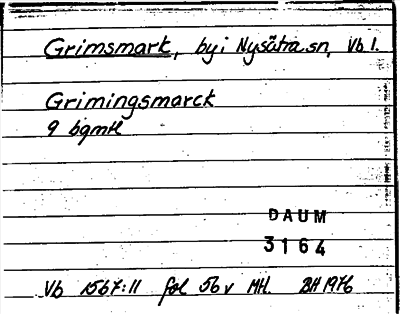 Grimsmark, by i Nysätra sn, Vb l.
Grimingsmarck
9 bgmH
DAUM
3164
Vb 1567:11 fol 56 v MH. BH 1976